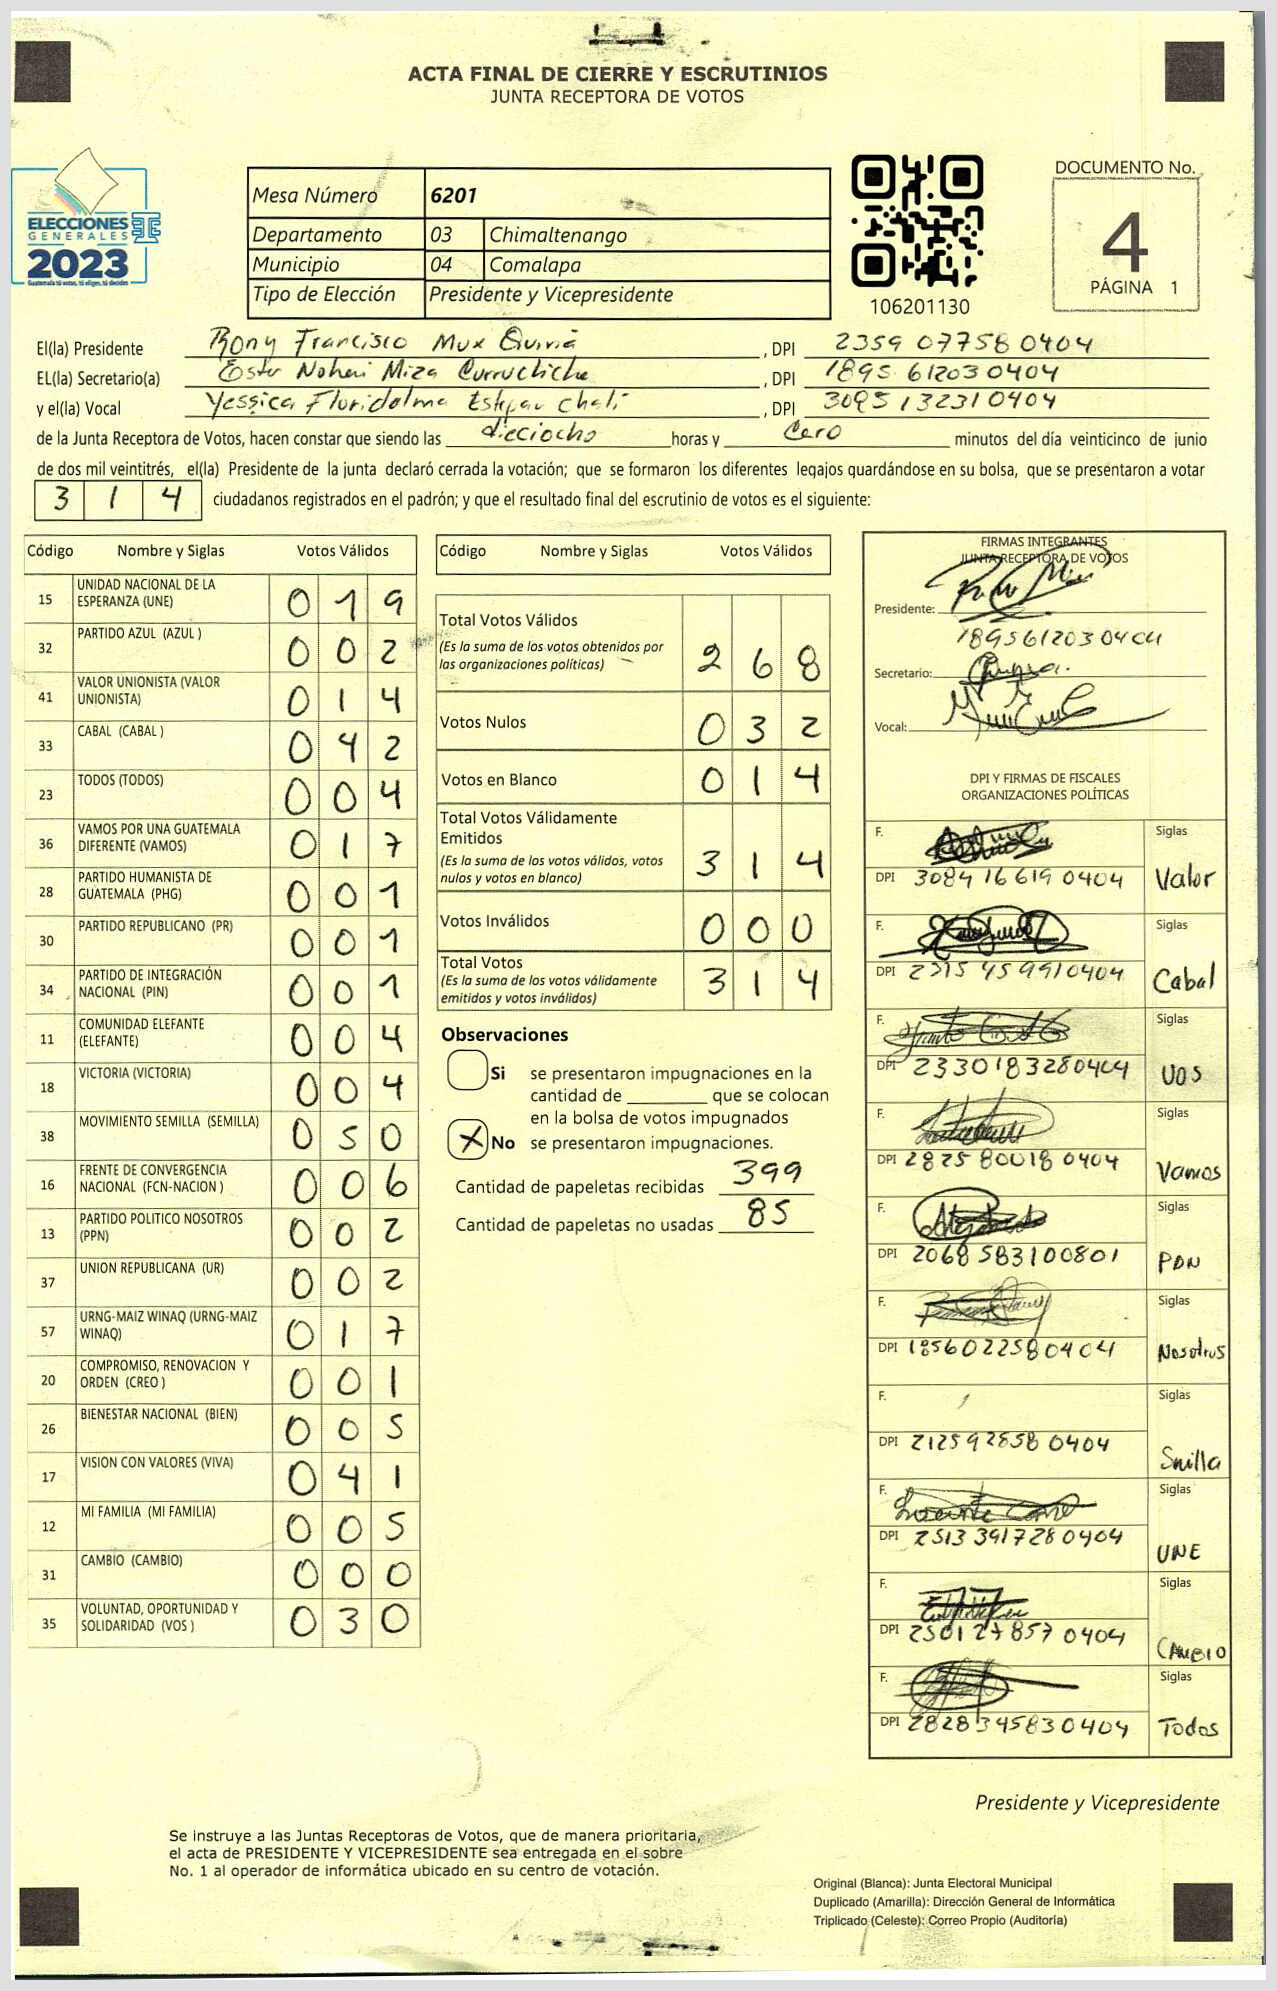 ACTA FINAL DE CIERRE Y ESCRUTINIOS
JUNTA RECEPTORA DE VOTOS
ELECCIONES
GENERALES
2023
Guatemala tú votas, tú eliges, tú decides
Mesa Número 6201
Departamento 03 Chimaltenango
Municipio 04 Comalapa
Tipo de Elección Presidente y Vicepresidente
106201130
DOCUMENTO No.
4
PÁGINA 1
El(la) Presidente Rony Francisco Mux Quiná , DPI 2359 07758 0404
EL(la) Secretario(a) Ester Noheri Miza Curruchiche , DPI 1895 61203 0404
y el(la) Vocal Yessica Floridalma Estepan Chalí , DPI 3095 13231 0404
de la Junta Receptora de Votos, hacen constar que siendo las dieciocho horas y cero minutos del día veinticinco de junio
de dos mil veintitrés, el(la) Presidente de la junta declaró cerrada la votación; que se formaron los diferentes legajos quardándose en su bolsa, que se presentaron a votar
3 1 4 ciudadanos registrados en el padrón; y que el resultado final del escrutinio de votos es el siguiente:
Código Nombre y Siglas Votos Válidos
15 UNIDAD NACIONAL DE LA ESPERANZA (UNE) 0 1 9
32 PARTIDO AZUL (AZUL ) 0 0 2
41 VALOR UNIONISTA (VALOR UNIONISTA) 0 1 4
33 CABAL (CABAL ) 0 4 2
23 TODOS (TODOS) 0 0 4
36 VAMOS POR UNA GUATEMALA DIFERENTE (VAMOS) 0 1 7
28 PARTIDO HUMANISTA DE GUATEMALA (PHG) 0 0 1
30 PARTIDO REPUBLICANO (PR) 0 0 1
34 PARTIDO DE INTEGRACIÓN NACIONAL (PIN) 0 0 1
11 COMUNIDAD ELEFANTE (ELEFANTE) 0 0 4
18 VICTORIA (VICTORIA) 0 0 4
38 MOVIMIENTO SEMILLA (SEMILLA) 0 5 0
16 FRENTE DE CONVERGENCIA NACIONAL (FCN-NACION ) 0 0 6
13 PARTIDO POLITICO NOSOTROS (PPN) 0 0 2
37 UNION REPUBLICANA (UR) 0 0 2
57 URNG-MAIZ WINAQ (URNG-MAIZ WINAQ) 0 1 7
20 COMPROMISO, RENOVACION Y ORDEN (CREO ) 0 0 1
26 BIENESTAR NACIONAL (BIEN) 0 0 5
17 VISION CON VALORES (VIVA) 0 4 1
12 MI FAMILIA (MI FAMILIA) 0 0 5
31 CAMBIO (CAMBIO) 0 0 0
35 VOLUNTAD, OPORTUNIDAD Y SOLIDARIDAD (VOS ) 0 3 0
Código Nombre y Siglas Votos Válidos
Total Votos Válidos 2 6 8
(Es la suma de los votos obtenidos por
las organizaciones políticas)
Votos Nulos 0 3 2
Votos en Blanco 0 1 4
Total Votos Válidamente
Emitidos 3 1 4
(Es la suma de los votos válidos, votos
nulos y votos en blanco)
Votos Inválidos 0 0 0
Total Votos 3 1 4
(Es la suma de los votos válidamente
emitidos y votos inválidos)
Observaciones
Si se presentaron impugnaciones en la
cantidad de ________ que se colocan
en la bolsa de votos impugnados
X No se presentaron impugnaciones.
Cantidad de papeletas recibidas 399
Cantidad de papeletas no usadas 85
FIRMAS INTEGRANTES
JUNTA RECEPTORA DE VOTOS
Presidente:
1895612030404
Secretario:
Vocal:
DPI Y FIRMAS DE FISCALES
ORGANIZACIONES POLÍTICAS
F. Siglas
DPI 3084 16619 0404 Valor
F. Siglas
DPI 2315 45991 0404 Cabal
F. Siglas
DPI 2330183280404 VOS
F. Siglas
DPI 2825 80018 0404 Vamos
F. Siglas
DPI 2068 583100801 PDN
F. Siglas
DPI 1856022580404 Nosotros
F. Siglas
DPI 212592858 0404 Smilla
F. Siglas
DPI 2513 391728 0404 UNE
F. Siglas
DPI 250127857 0404 CAMBIO
F. Siglas
DPI 2828345830404 Todos
Presidente y Vicepresidente
Se instruye a las Juntas Receptoras de Votos, que de manera prioritaria,
el acta de PRESIDENTE Y VICEPRESIDENTE sea entregada en el sobre
No. 1 al operador de informática ubicado en su centro de votación.
Original (Blanca): Junta Electoral Municipal
Duplicado (Amarilla): Dirección General de Informática
Triplicado (Celeste): Correo Propio (Auditoría)